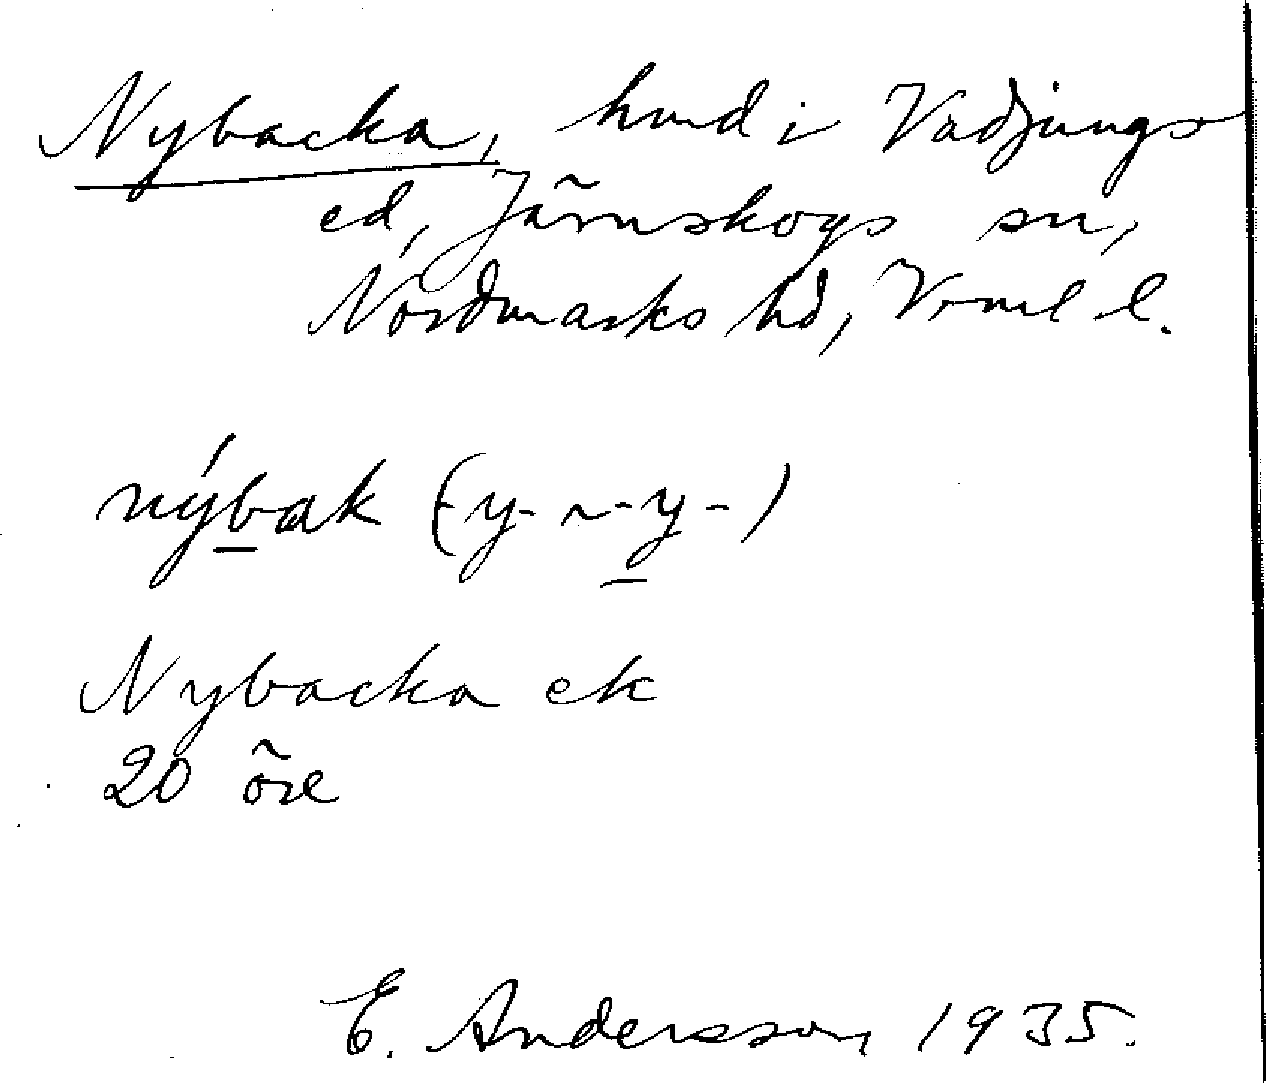 Nybacka, hmd i Vadjungs
ed, Järnskogs sn,
Nordmarks hd, Vrml l.
nýbak (y- ~-y-)
Nybacka ek
20 öre
E. Andersson 1935.